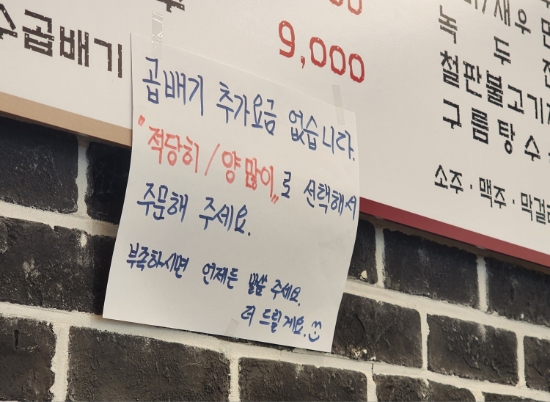 수곱배기
9,000
곱배기 추가요금 없습니다.
"적당히 / 양 많이"로 선택해서
주문해 주세요.
부족하시면 언제든 말씀 주세요.
더 드릴게요.
녹두전
철판불고기
구름탕수
소주·맥주·막걸리